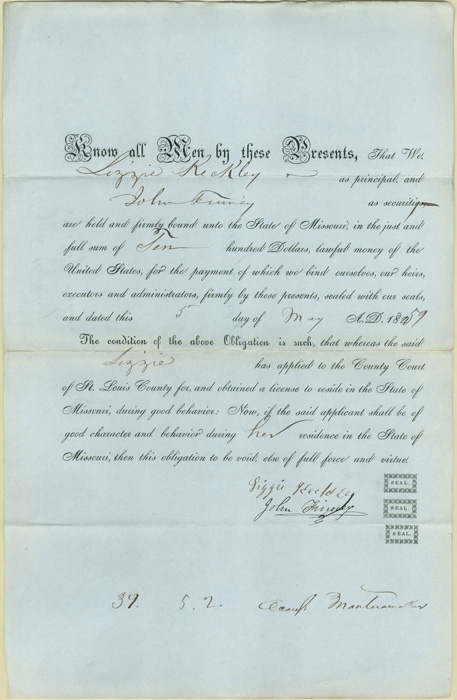 Know all Men by these Presents, That We,
Lizzie Keckley as principal, and
John Finney as securities
are held and firmly bound unto the State of Missouri, in the just and
full sum of Ten hundred Dollars, lawful money of the
United States, for the payment of which we bind ourselves, our heirs,
executors and administrators, firmly by these presents, sealed with our seals,
and dated this 5 day of May A. D. 1859
The condition of the above Obligation is such, that whereas the said
Lizzie has applied to the County Court
of St. Louis County for, and obtained a license to reside in the State of
Missouri, during good behavior: Now, if the said applicant shall be of
good character and behavior during her residence in the State of
Missouri, then this obligation to be void, else of full force and virtue.
Lizzie Keckley SEAL.
John Finney SEAL.
SEAL.
39. 5.2. Mantuamaker